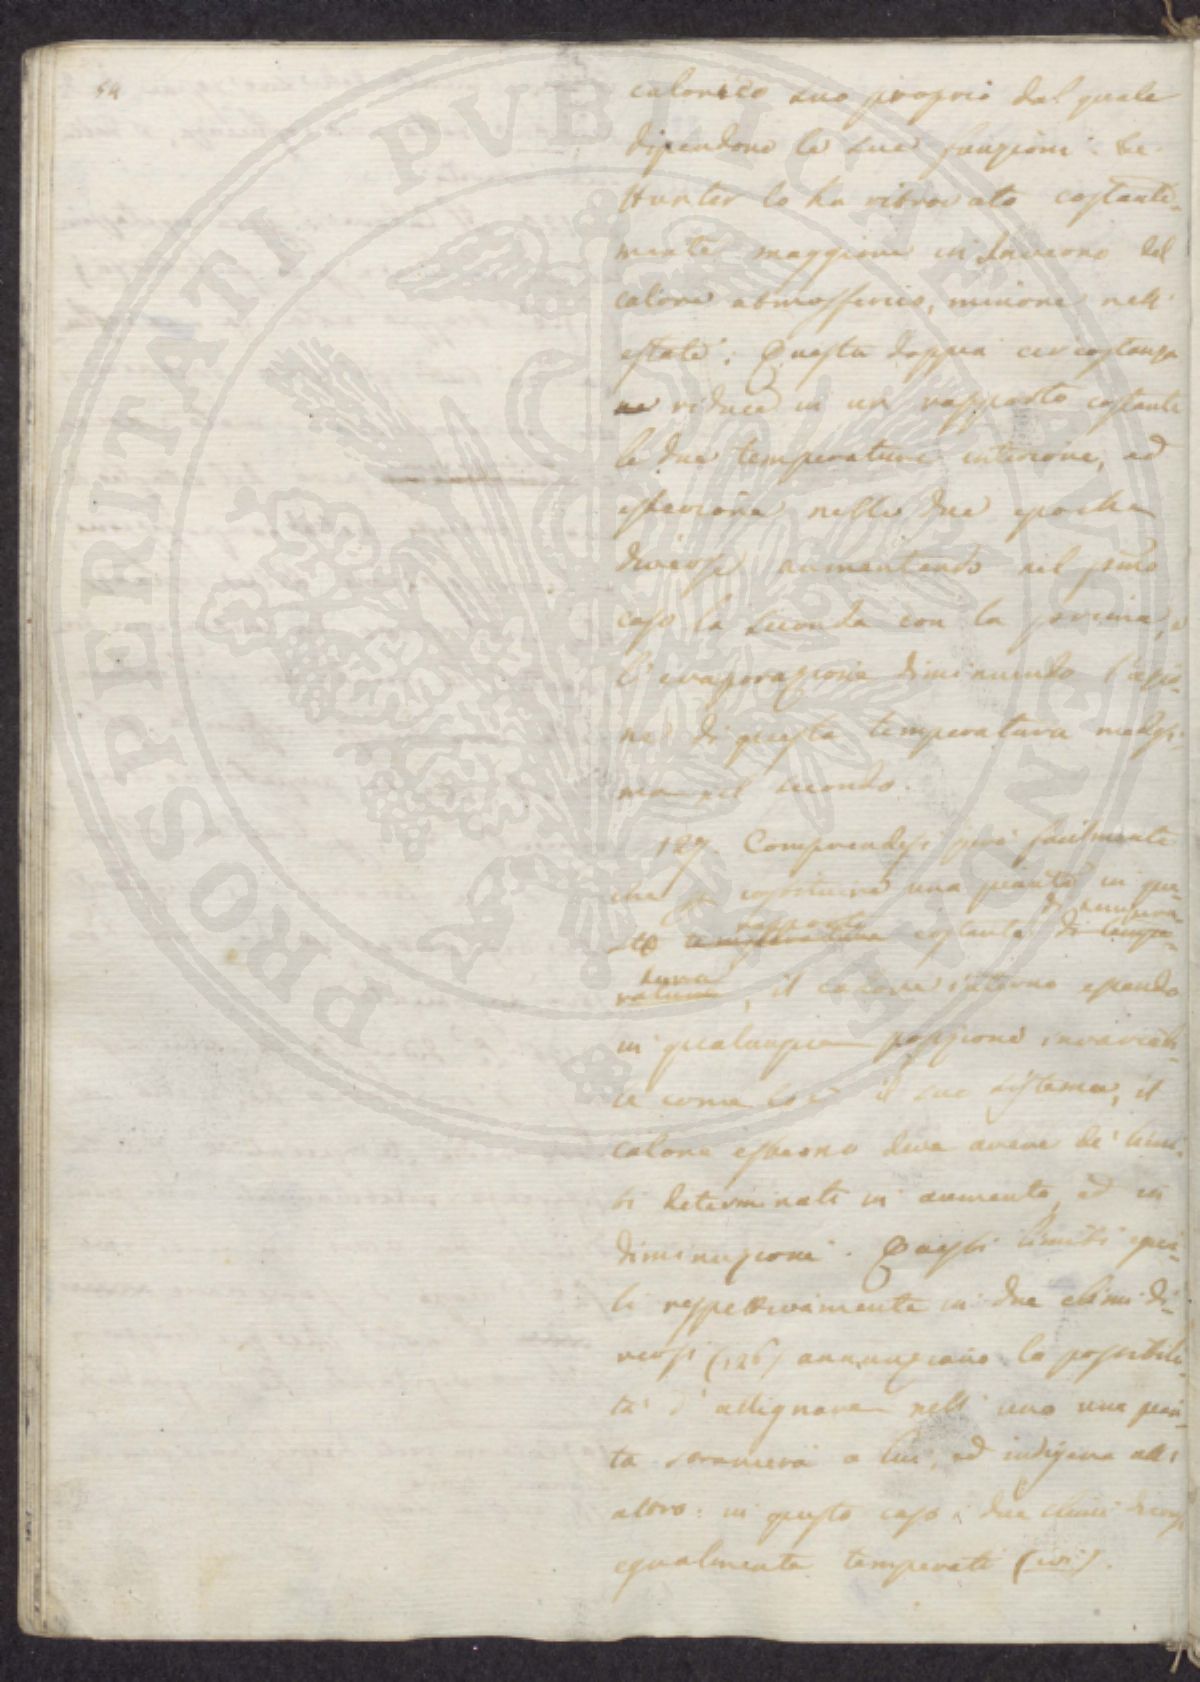 54
calorico suo proprio dal quale
dipendono le sue funzioni. &c.
Hunter lo ha ritrovato costante-
mente maggiore in Inverno del
calore atmosferico, minore nell'
estate; Questa doppia circostanza
riduce in un rapporto costante
le due temperature interiore, ed
esteriore nelle due epoche
diverse aumentando nel pmo
caso la seconda con la prima, e
l'evaporazione diminuendo l'azio-
ne di questa temperatura medesi-
ma nel secondo.
127. Comprendesi però facilmente
che per costituire una pianta in que-
di tempera-
rapporto
sto temperatura costante di tempe-
tura
rature, il calore interno essendo
in qualunque posizione invariabi-
le come lo è il suo sistema, il
calore esterno deve avere de' limi-
ti determinati in aumento, ed in
diminuzione. Questi limiti
respettivamente in due climi di-
versi (126) annunziano la possibili-
tà d'allignare nell'uno una pian-
ta straniera a lui, ed indigena all'
altro: in questo caso i due climi
egualmente temperati (ivi).
PROSPERITATI PUBLICAE AUGENDAE